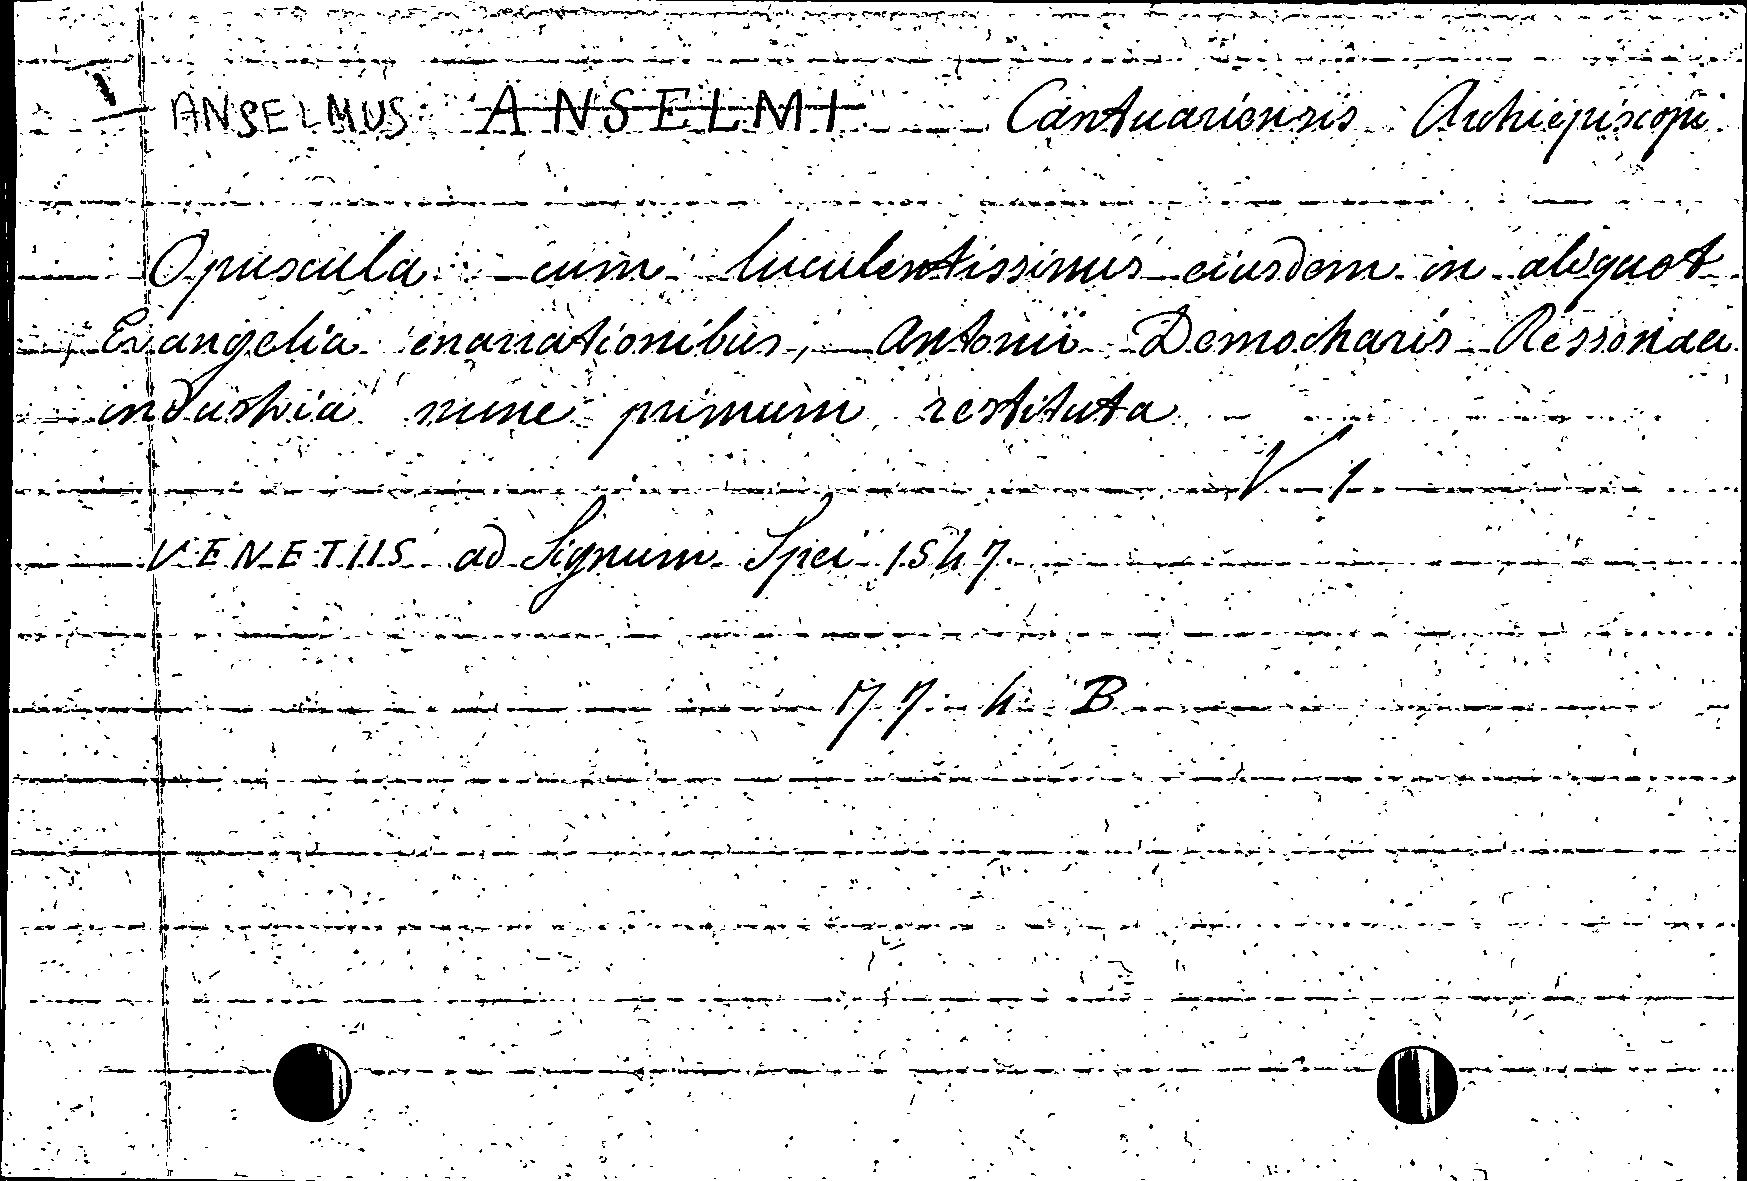 ANSELMUS ANSELMI Cantuariensis Archiepiscopi
Opuscula cum luculentissimis eiusdem in aliquot
Evangelia enarrationibus, Antonii Democharis Ressonaei
industria nunc primum restituta
V 1
VENETIIS ad Signum Spei 1547
77 4 B